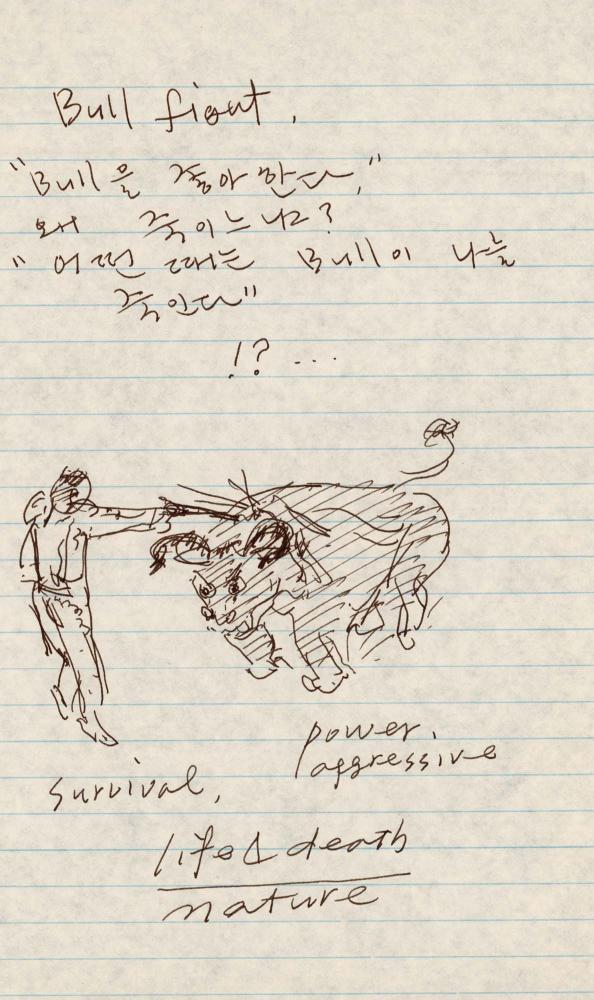 Bull fight,
"Bull을 좋아한다,"
왜 죽이느냐?
"어떤 때는 Bull이 나를
죽인다"
!? ...
power,
aggressive
survival,
life & death
nature